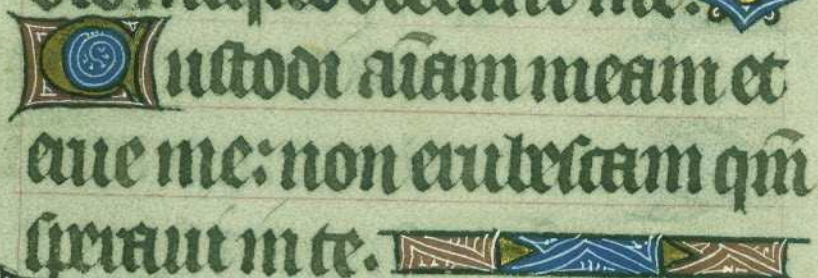 oderunt me.
Custodi aīam meam et
erue me: non erubescam qm̄
speraui in te.